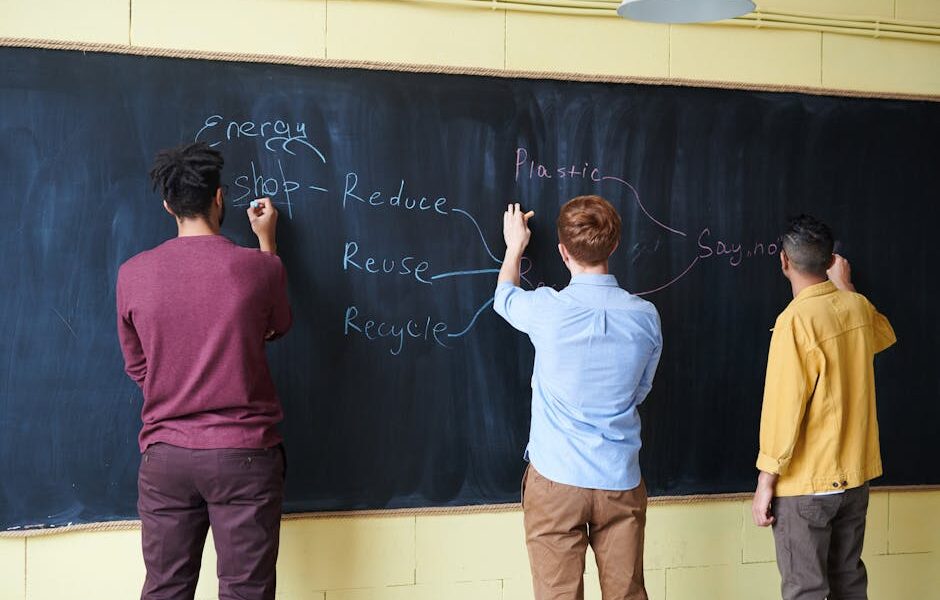 Energy
shop - Reduce
Plastic
Reuse
Say, no
Recycle